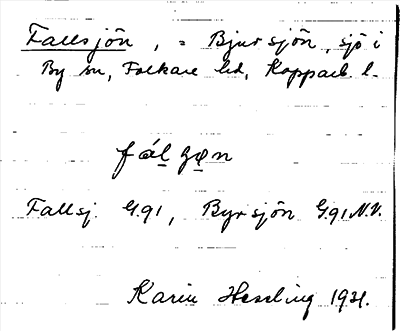 Fallsjön, = Bjursjön, sjö i
By sn, Folkare hd, Kopparb. l.
fálʒọn
Fallsj. G.91, Byrsjön G.91 N.V.
Karin Hessling 1931.